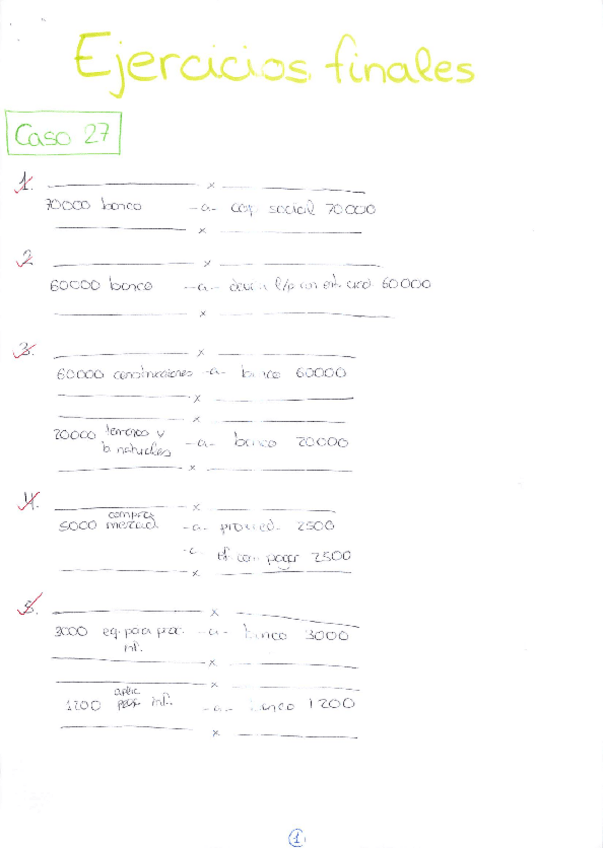 Ejercicios finales
Caso 27
1. x
70000 banco -a- cap. social 70000
x
2. x
60000 banco -a- l/p con ent. 60000
x
3. x
60000 construcciones -a- banco 60000
x
x
20000 terrenos y
b. naturales -a- banco 20000
x
4. x
5000 compras
mercad. -a- proveed. 2500
ef. com. pagar 2500
x
5. x
3000 eq. para proc. -a- banco 3000
inf.
x
x
1200 aplic.
inf. -a- banco 1200
x
1